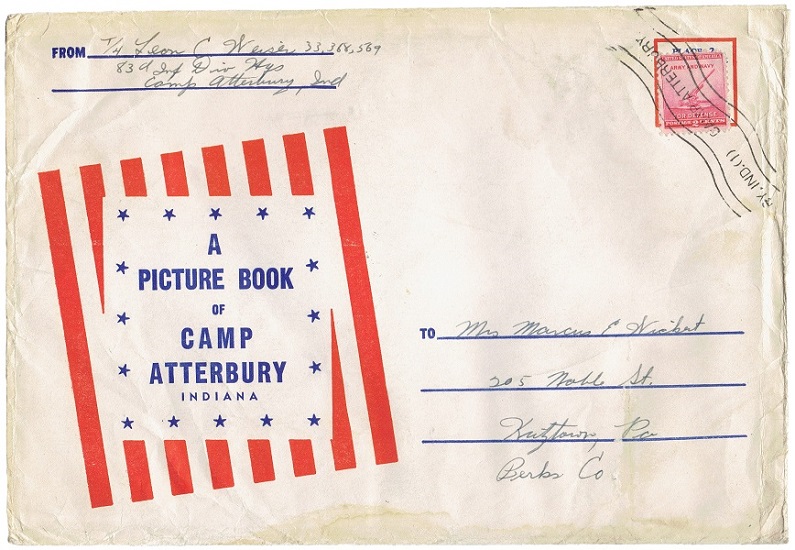 FROM T/4 Leon C Weiser 33,368,569
83d Inf Div Hqs
Camp Atterbury, Ind
PLACE 2
ARMY AND NAVY
FOR DEFENSE
POSTAGE 2 CENTS
CAMP ATTERBURY
RY, IND. (1)
A
PICTURE BOOK
OF
CAMP
ATTERBURY
INDIANA
TO Mrs Marcus E Wickert
205 Noble St.
Kutztown, Pa
Berks Co.